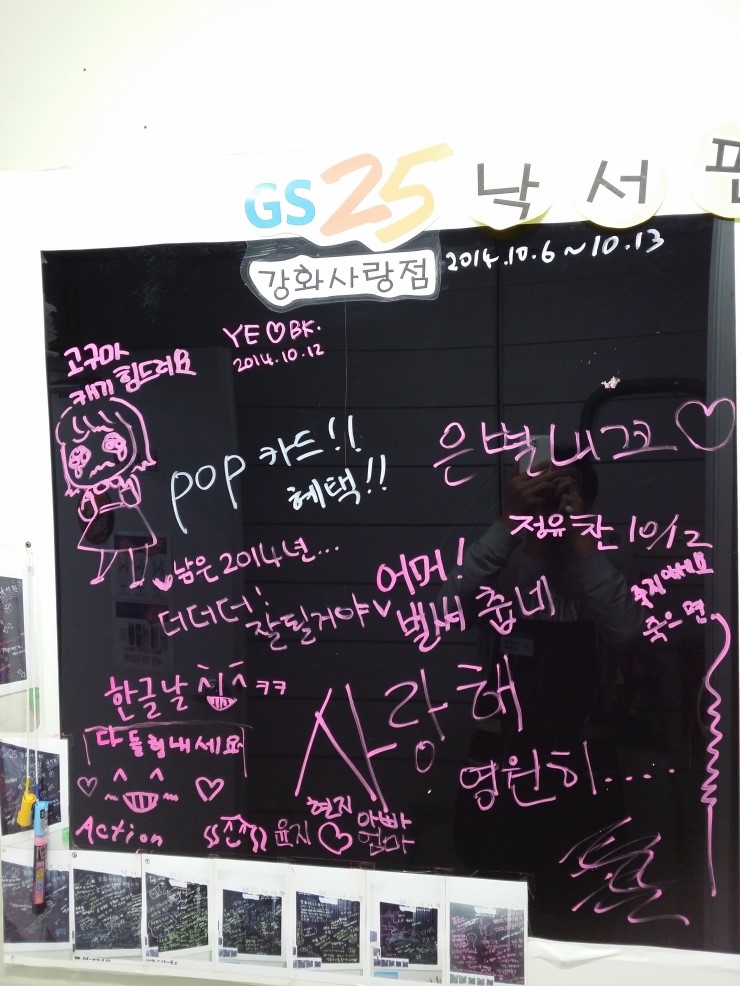 GS25 낙서판
강화사랑점 2014.10.6~10.13
YE♡BK.
2014.10.12
고구마
캐기 힘드러요
pop 카드!!
혜택!!
은별내꼬♡
정유찬 10/12
남은 2014년...
더더더! 잘될거야
어머!
벌써 춥네
죽으면
한글날 ㅋㅋ
다들힘내세요
사랑해
영원히....
Action
윤지
현지♡아빠
엄마